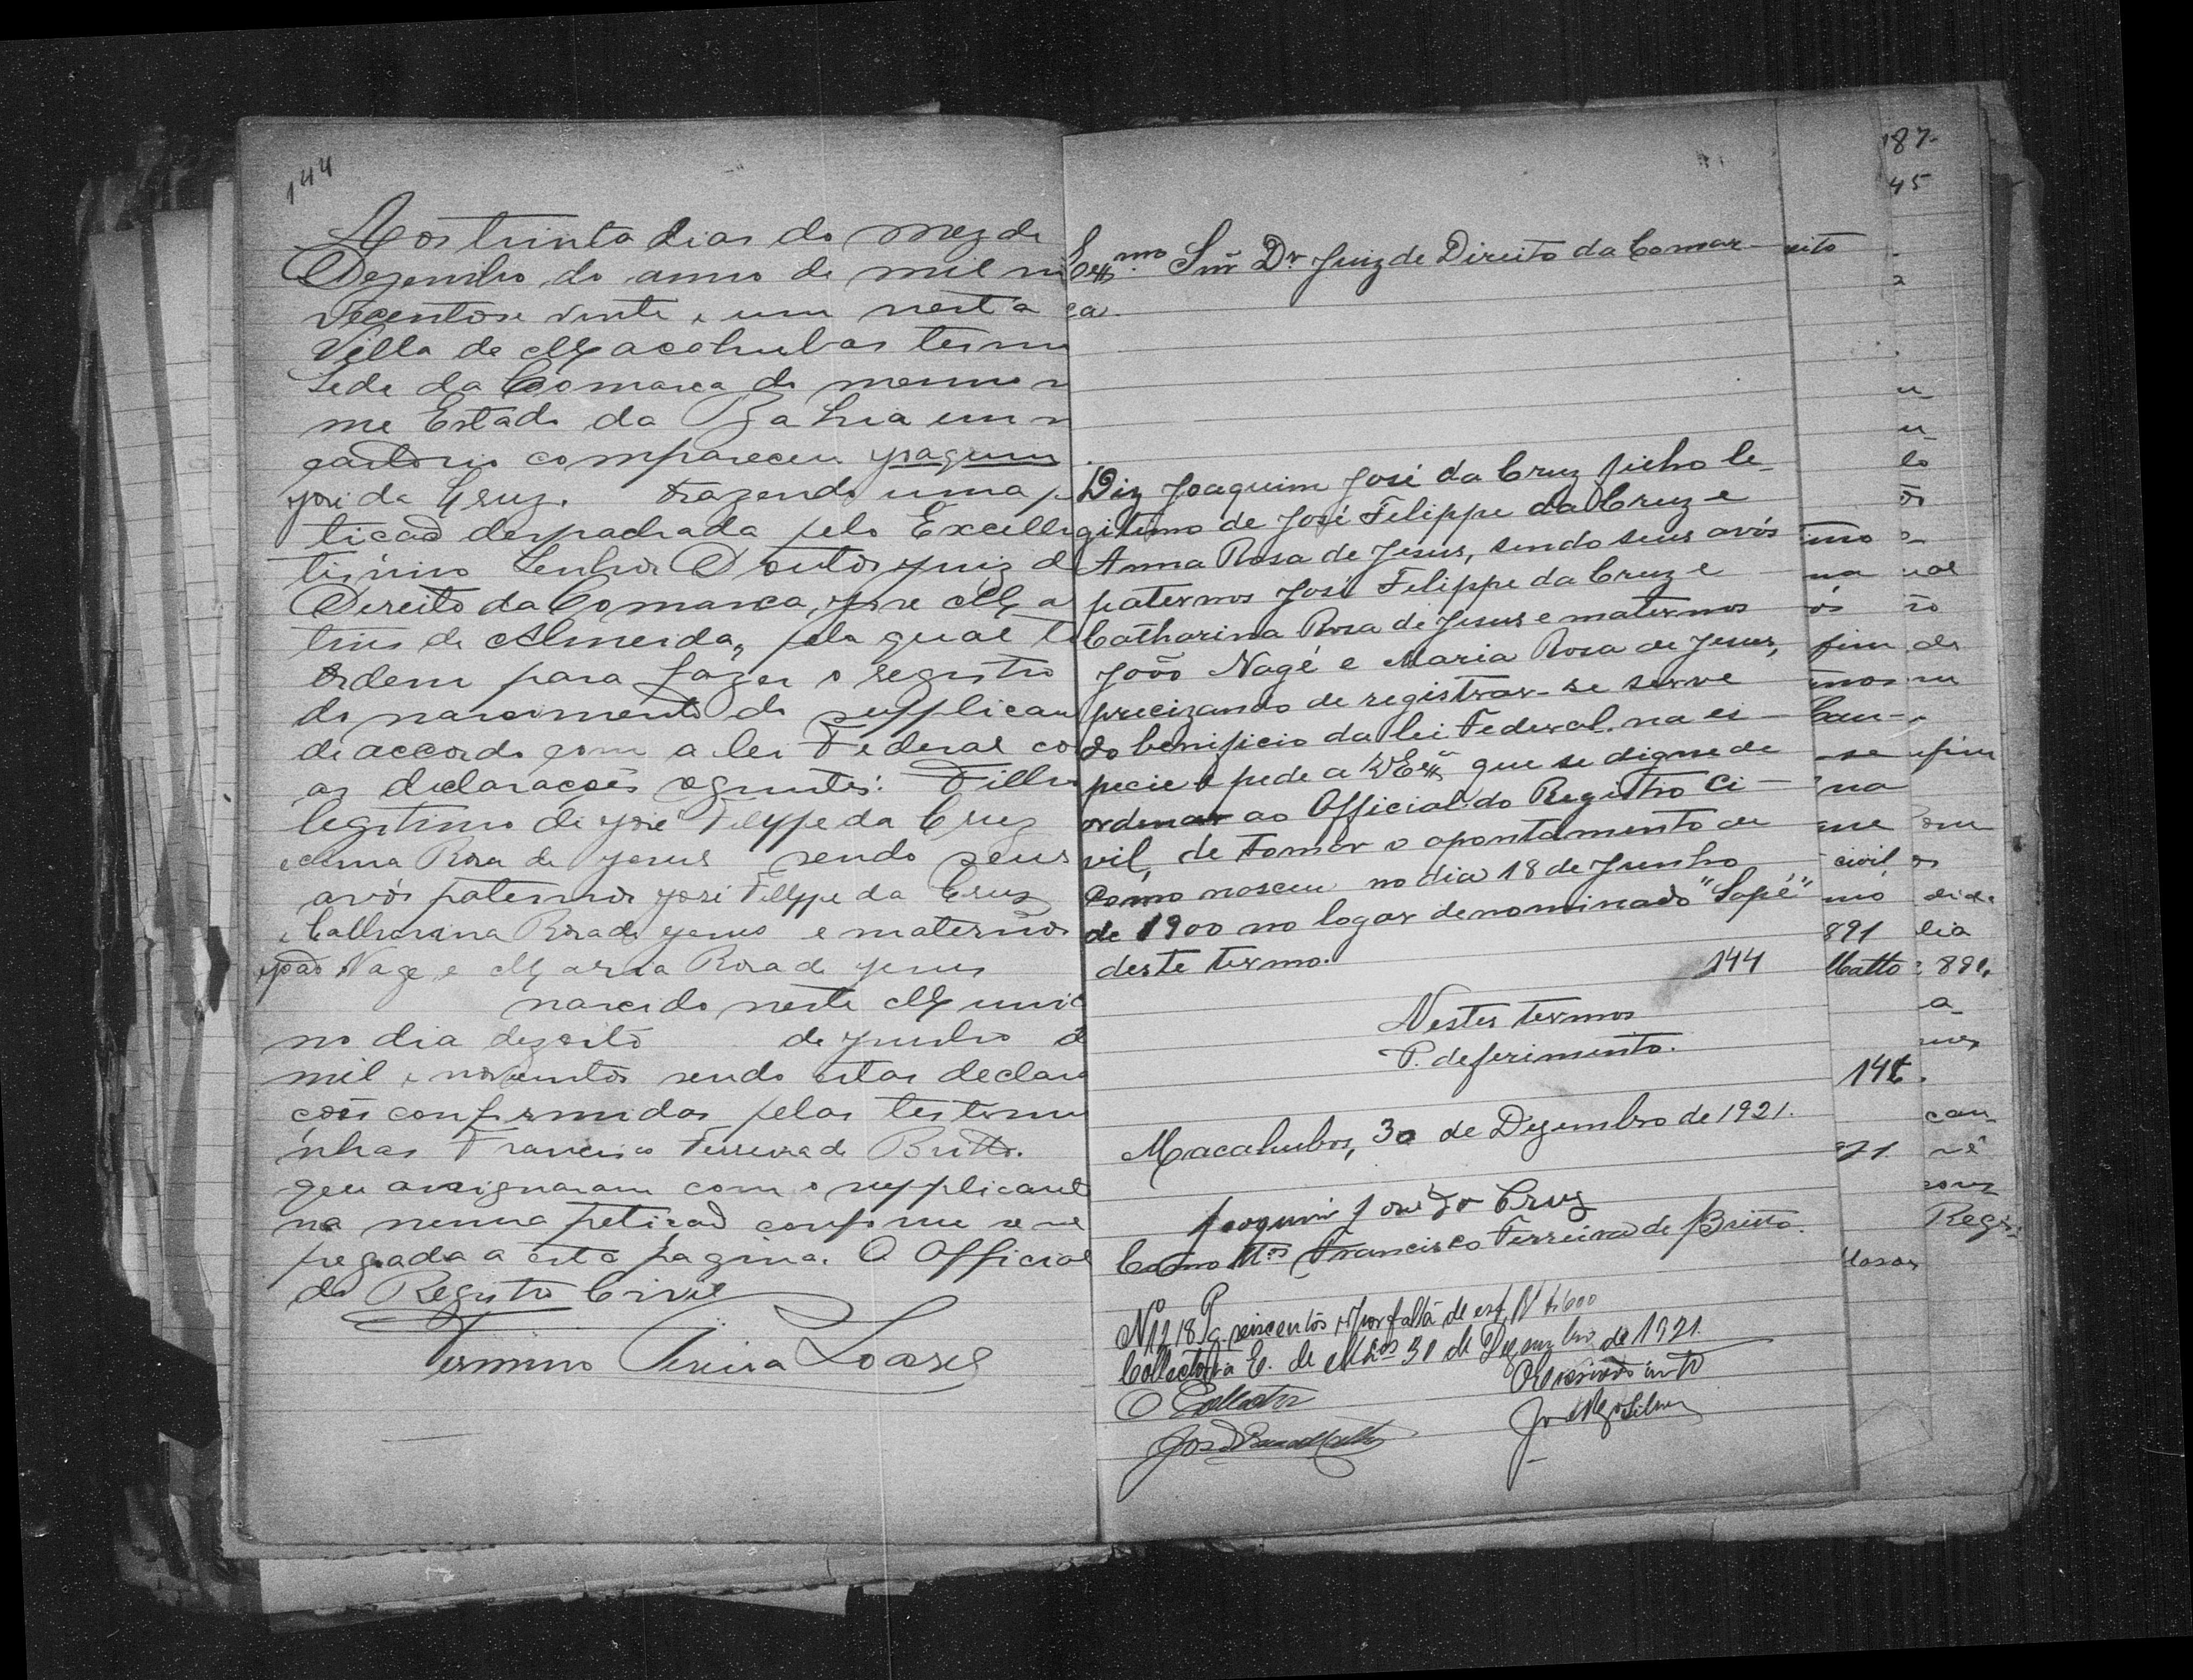 144
Aos trinta dias do mez de
Dezembro do anno de mil no
vecentos e vinte e um nesta
Villa de Macahubas termo
sede da Comarca do mesmo n
me Estado da Bahia em m
cartorio compareceu Joaquim
José da Cruz. trazendo uma pe
tição despachada pelo Excellen
tissimo Senhor Doutor Juiz d
Direito da Comarca, José Ma
tins de Almeida, pela qual te
ordem para fazer o registro
do nascimento do supplican
de accordo com a lei Federal co
as declarações seguintes: Filho
legitimo de José Felippe da Cruz
e Anna Rosa de Jesus sendo seus
avós paternos José Felippe da Cruz
e Catharina Rosa de Jesus e maternos
João Nage e Maria Rosa de Jesus
nascido neste Munic
no dia dezoito de Junho d
mil e novecentos sendo estas declara
ções confirmadas pelas testemu
nhas Francisco Ferreira de Britto.
que assignaram com o supplicante
na mesma petição conforme se ve
pregada a esta pagina. O Official
do Registro Civil
Pereira Soares
187
45
Exmo. Snr Dr. Juiz de Direito da Comar-
ca.
Diz Joaquim José da Cruz filho le-
gitimo de José Felippe da Cruz e
Anna Rosa de Jesus, sendo seus avós
paternos José Felippe da Cruz e
Catharina Rosa de Jesus e maternos
João Nagé e Maria Rosa de Jesus,
precizando de registrar-se serve
do benificio da lei Federal na es-
pecie e pede a V Exª que se digne de
ordenar ao Official do Registro Ci-
vil, de tomar o apontamento de
como nasceu no dia 18 de Junho
de 1900 no logar denominado "Sapé"
deste termo.
144
Nestes termos
P. deferimento.
Macahubas, 30 de Dezembro de 1921.
Joaquim José da Cruz
Como tas Francisco Ferreira de Britto.
Nº 1218 Pg seiscentos rs por falta de est.
Collectoria E. de Mbas 30 de Dezembro de 1921.
O Collector